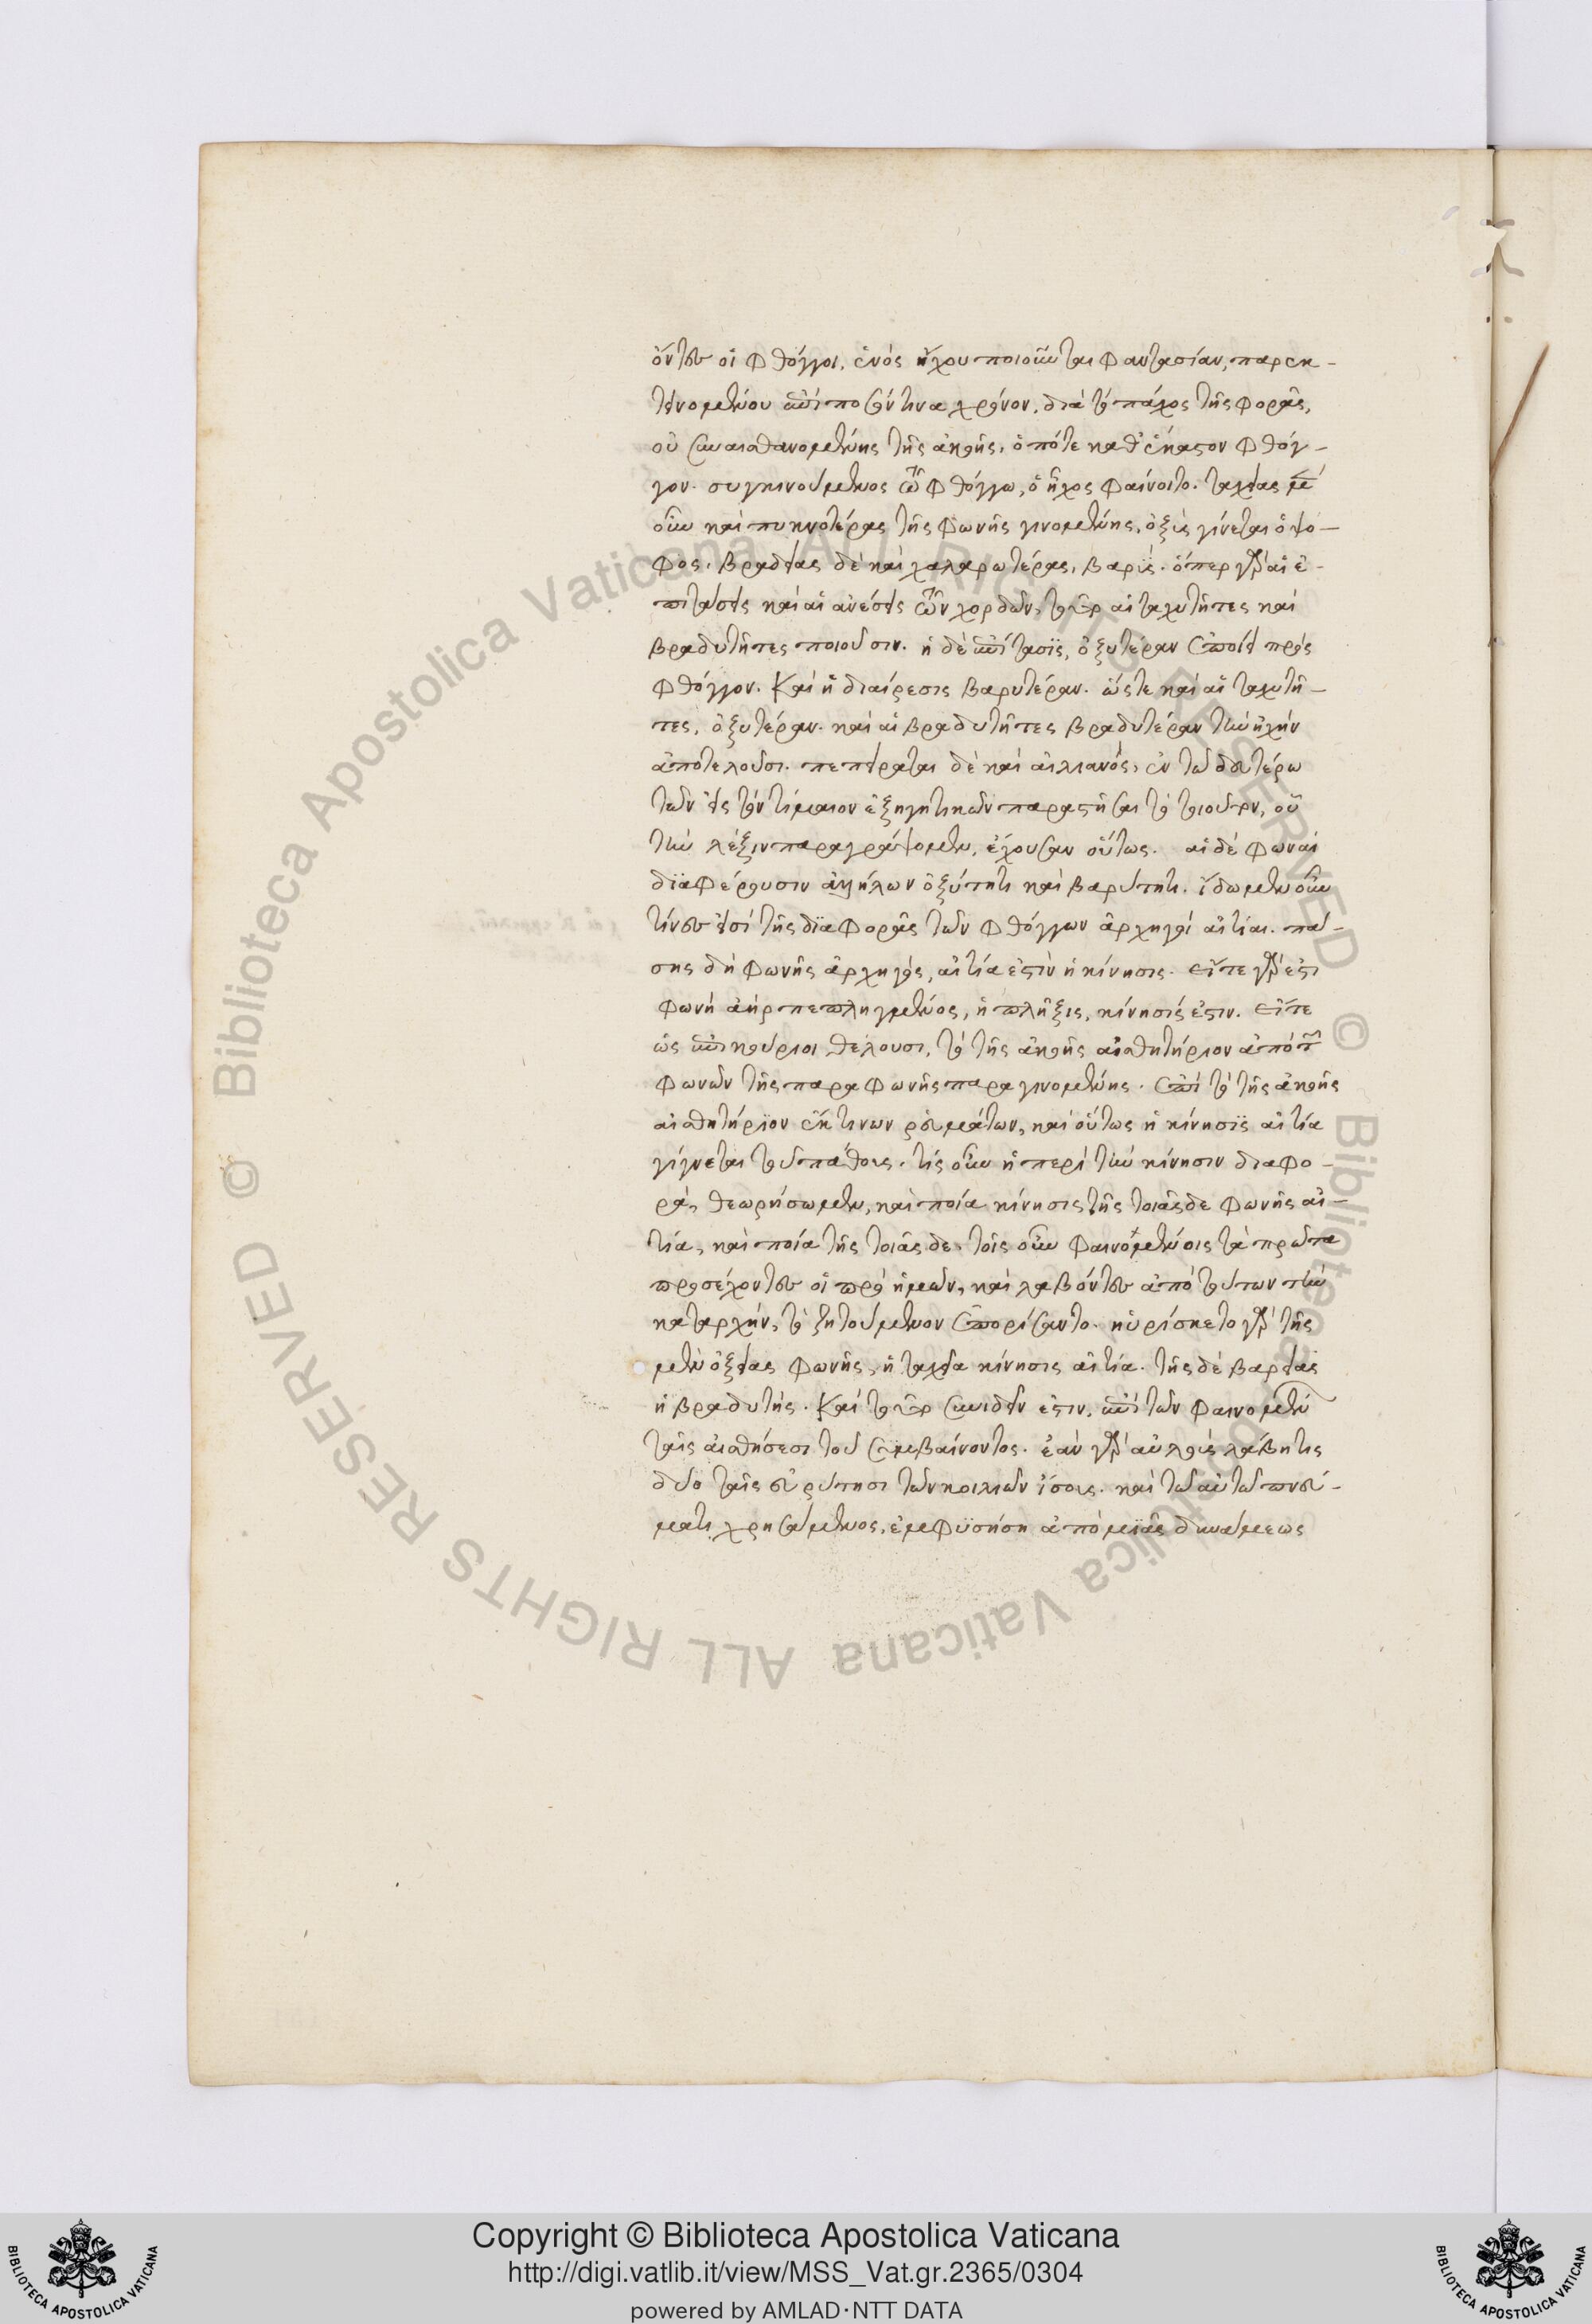 ὄντες οἱ φθόγγοι, ἑνὸς ἤχου ποιοῦνται φαντασίαν, παρεκ-
τεινομένου ἐπὶ ποσόν τινα χρόνον, διὰ τὸ τάχος τῆς φορᾶς,
οὐ συναισθανομένης τῆς ἀκοῆς, ὁπότε καθ' ἕκαστον φθόγ-
γον. συγκινούμενος τῷ φθόγγῳ, ὁ ἦχος φαίνοιτο. ταχείας μὲν
οὖν καὶ πυκνοτέρας τῆς φωνῆς γινομένης, ὀξὺς γίνεται ὁ ψό-
φος, βραδείας δὲ καὶ χαλαρωτέρας, βαρύς. ὅπερ γὰρ αἱ ἐ-
πιτάσεις καὶ αἱ ἀνέσεις τῶν χορδῶν, τοῦτο αἱ ταχυτῆτες καὶ
βραδυτῆτες ποιοῦσιν. ἡ δὲ ἐπίτασϊς, ὀξυτέραν ποιεῖ πρὸς
φθόγγον. Καὶ ἡ διαίρεσις βαρυτέραν. ὥστε καὶ αἱ ταχυτῆ-
τες, ὀξυτέραν. καὶ αἱ βραδυτῆτες βραδυτέραν τὴν ἠχὴν
ἀποτελοῦσι. πεπείραται δὲ καὶ αἰλιανὸς, ἐν τῷ δευτέρῳ
τῶν εἰς τὸν τίμαιον ἐξηγητικῶν παραστῆσαι τὸ τοιοῦτον, οὗ
τὴν λέξιν παραγράψομεν, ἔχουσαν οὕτως. αἱ δὲ φωναὶ
δϊαφέρουσιν ἀλλήλων ὀξύτητι καὶ βαρύτητι. ἴδωμεν οὖν
τίνες εἰσὶ τῆς δϊαφορᾶς τῶν φθόγγων ἀρχηγοὶ αἰτίαι. πά-
σης δὴ φωνῆς ἀρχηγὸς, αἰτία ἐστὶν ἡ κίνησις. εἴτε γὰρ ἐστι
φωνὴ ἀὴρ πεπληγμένος, ἡ πλῆξις, κίνησίς ἐστιν. εἴτε
ὡς ἐπικούριοι θέλουσι, τὸ τῆς ἀκοῆς αἰσθητήριον ἀπὸ τῶν
φωνῶν τῆς παρα φωνῆς παραγινομένης. ἐπὶ τὸ τῆς ἀκοῆς
αἰσθητήρϊον ἔκ τινων ῥευμάτων, καὶ οὕτως ἡ κίνησϊς αἰτία
γίγνεται τοῦ πάθους. τίς οὖν ἡ περὶ τὴν κίνησιν διαφο-
ρά, θεωρήσωμεν, καὶ ποία κίνησις τῆς τοιᾶσδε φωνῆς αἰ-
τία, καὶ ποία τῆς τοιᾶσδε. τοῖς οὖν φαινομένοις τὰ πρῶτα
προσέχοντες οἱ πρὸ ἡμῶν, καὶ λαβόντες ἀπὸ τούτων τὴν
καταρχὴν, τὸ ζητούμενον ἐπορίσαντο. ηὑρίσκετο γὰρ τῆς
μὲν ὀξείας φωνῆς, ἡ ταχεῖα κίνησις αἰτία. τῆς δὲ βαρείας
ἡ βραδυτής. Καὶ τοῦτο συνιδεῖν ἐστιν, ἐπὶ τῶν φαινομένων
ταῖς αἰσθήσεσι τοῦ συμβαίνοντος. ἐὰν γὰρ αὐλοὺς λάβῃ τις
δύο ταῖς εὐρύτησι τῶν κοιλιῶν ἴσους. καὶ τῷ αὐτῷ πνεύ-
ματι χρησάμενος, ἐμφϋσήσῃ ἀπὸ μϊᾶς δυνάμεως
Copyright © Biblioteca Apostolica Vaticana
http://digi.vatlib.it/view/MSS_Vat.gr.2365/0304
powered by AMLAD·NTT DATA
© Biblioteca Apostolica Vaticana ALL RIGHTS RESERVED
© Biblioteca Apostolica Vaticana ALL RIGHTS RESERVED
BIBLIOTECA APOSTOLICA VATICANA
BIBLIOTECA APOSTOLICA VATICANA